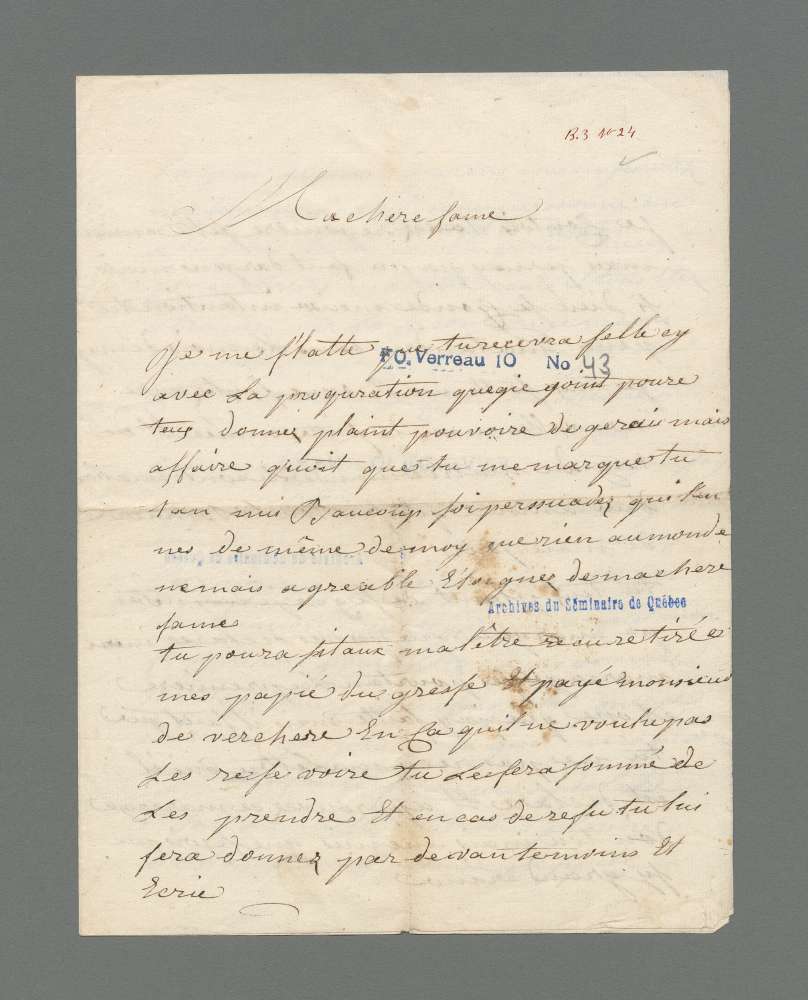 B.3 No 24
Ma chere fame
Je me flatte que tu recevra selle cy
FO. Verreau 10 No 43
avec La proquration quegié goint poure
teus donnez plaint pouvoire de gerais mais
affaire quoit que tu me marque tu
tan nui Baucoup soi persuadez quil en
nes de même de moy que rien au monde
nemais agreable Eloignez de ma chere
fame
Archives du Séminaire de Québec
tu poura sitaux malêtre recu retirée
mes papié du greffe Et payé monsieur
de verchere En Ca quil ne voulu pas
Les resse voire tu Le fera sommé de
Les prendre Et en cas de refu tu lui
fera donnez par devan temoins Et
Ecrie